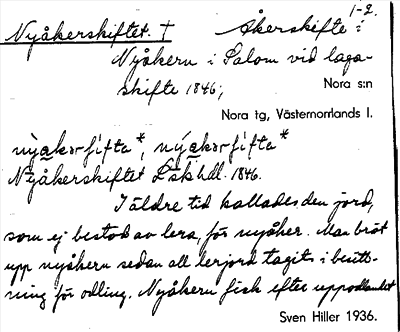 1-2.
Nyåkerskiftet. † Åkerskifte i
Nyåkern i Salom vid laga-
skifte 1846;
Nora s:n
Nora tg, Västernorrlands l.
Nyåkerskiftet Lskhdl. 1846.
I äldre tid kallades den jord,
som ej bestod av lera, för nyåker. Man bröt
upp nyåkern sedan all lerjord tagits i besitt-
ning för odling. Nyåkern fick efter uppodlandet
Sven Hiller 1936.